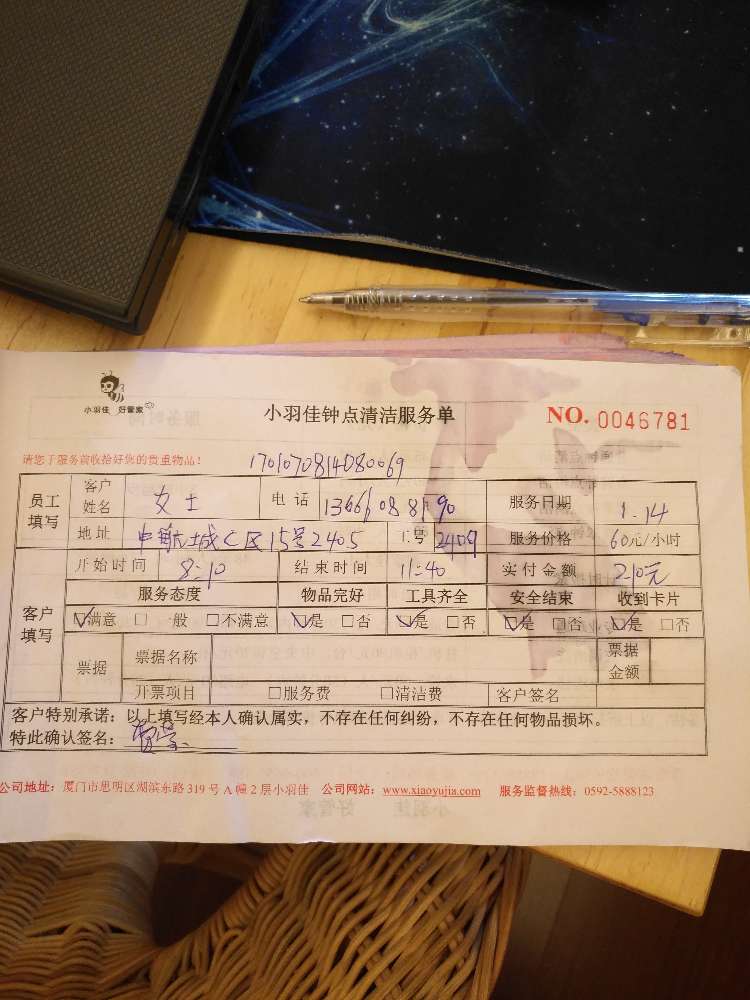 小羽佳 好管家
小羽佳钟点清洁服务单
NO. 0046781
请您于服务前收拾好您的贵重物品！
1701070814080069
员工填写 客户姓名 女士 电话 服务日期 1.14
地址 中航城C区15号2405 工号 2409 服务价格 60元/小时
开始时间 8:10 结束时间 11:40 实付金额 210元
客户填写 服务态度 物品完好 工具齐全 安全结束 收到卡片
☑满意 □一般 □不满意 ☑是 □否 ☑是 □否 ☑是 □否 ☑是 □否
票据 票据名称 票据金额
开票项目 □服务费 □清洁费 客户签名
客户特别承诺：以上填写经本人确认属实，不存在任何纠纷，不存在任何物品损坏。
特此确认签名：
公司地址：厦门市思明区湖滨东路 319 号 A 幢 2 层小羽佳 公司网站：www.xiaoyujia.com 服务监督热线：0592-5888123